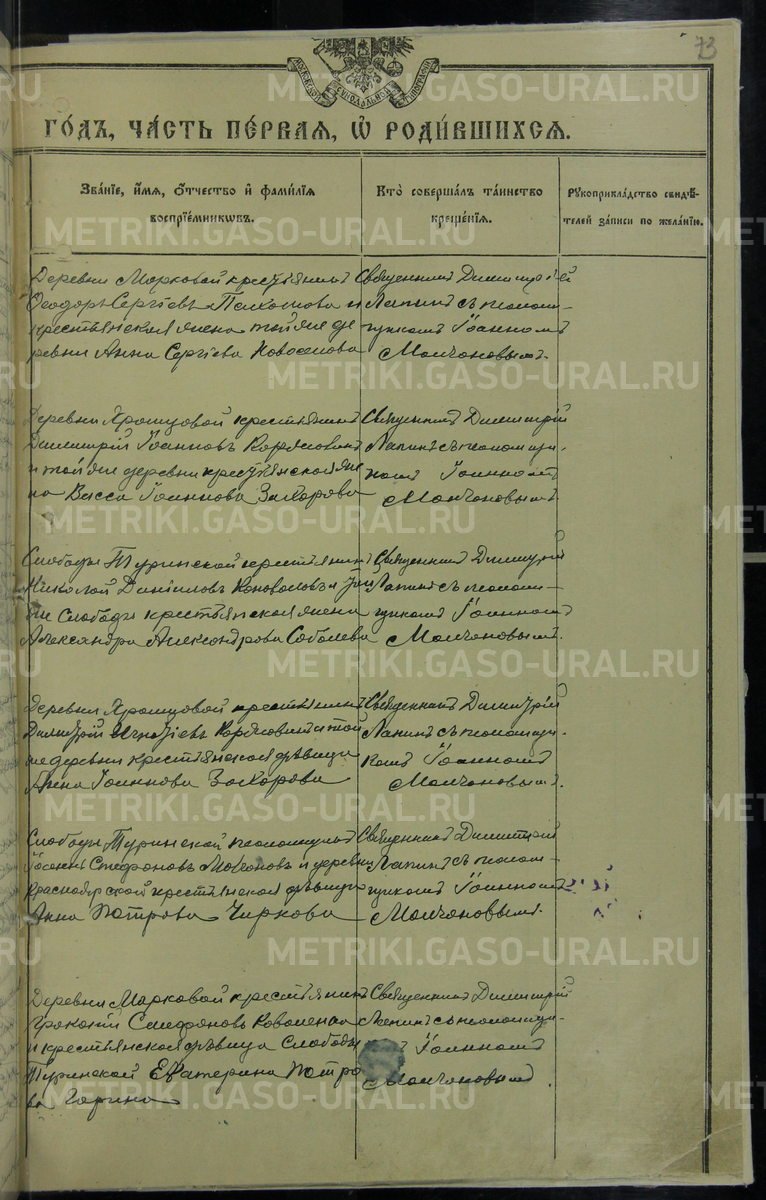 73
МОСКОВСКОЙ СѴНОДАЛЬНОЙ ТИПОГРАФІИ
ГО́ДЪ, ЧА́СТЬ ПЕ́РВАЯ, Ѡ҆ РОДИ́ВШИХСЯ.
Зва́нїе, и҆́мя, ѻ҆́тчество и҆ фами́лїя
воспрїе́мникѡвъ.
Кто̀ соверша́лъ та́инство
креще́нїя.
Рꙋкоприкла́дство свидѣ́-
телей за́писи по жела́нїю.
Деревни Марковой крестьянинъ
Ѳеодоръ Сергіевъ и
крестьянская жена той же де
ревни Анна Сергіева Новоселова
Священникъ Димитрій
Лапинъ съ псалом-
щикомъ Іоанномъ
Молчановымъ.
Деревни крестьянинъ
Димитрій Іоанновъ
и той же деревни крестьянская же
на Васса Іоаннова Захарова
Священникъ Димитрій
Лапинъ съ псаломщи-
комъ Іоанномъ
Молчановымъ
Слободы Туринской крестьянинъ
Николай Даніиловъ Коноваловъ и
же Слободы крестьянская жена
Александра Александрова Соболева
Священникъ Димитрій
Лапинъ съ псалом-
щикомъ Іоанномъ
Молчановымъ.
Деревни крестьянинъ
Димитрій и той
же деревни крестьянская дѣвица
Анна Іоаннова Захарова
Священникъ Димитрій
Лапинъ съ псаломщи-
комъ Іоанномъ
Молчановымъ.
Слободы Туринской псаломщикъ
Стефановъ и деревни
Красноярской крестьянская дѣвица
Анна Петрова Чиркова
Священникъ Димитрій
Лапинъ съ псалом-
щикомъ Іоанномъ
Молчановымъ.
Деревни Марковой крестьянинъ
Стефановъ
и крестьянская дѣвица Слободы
Туринской Екатерина Петро
ва
Священникъ Димитрій
Лапинъ съ псаломщи-
Іоанномъ
Молчановымъ.
METRIKI.GASO-URAL.RU